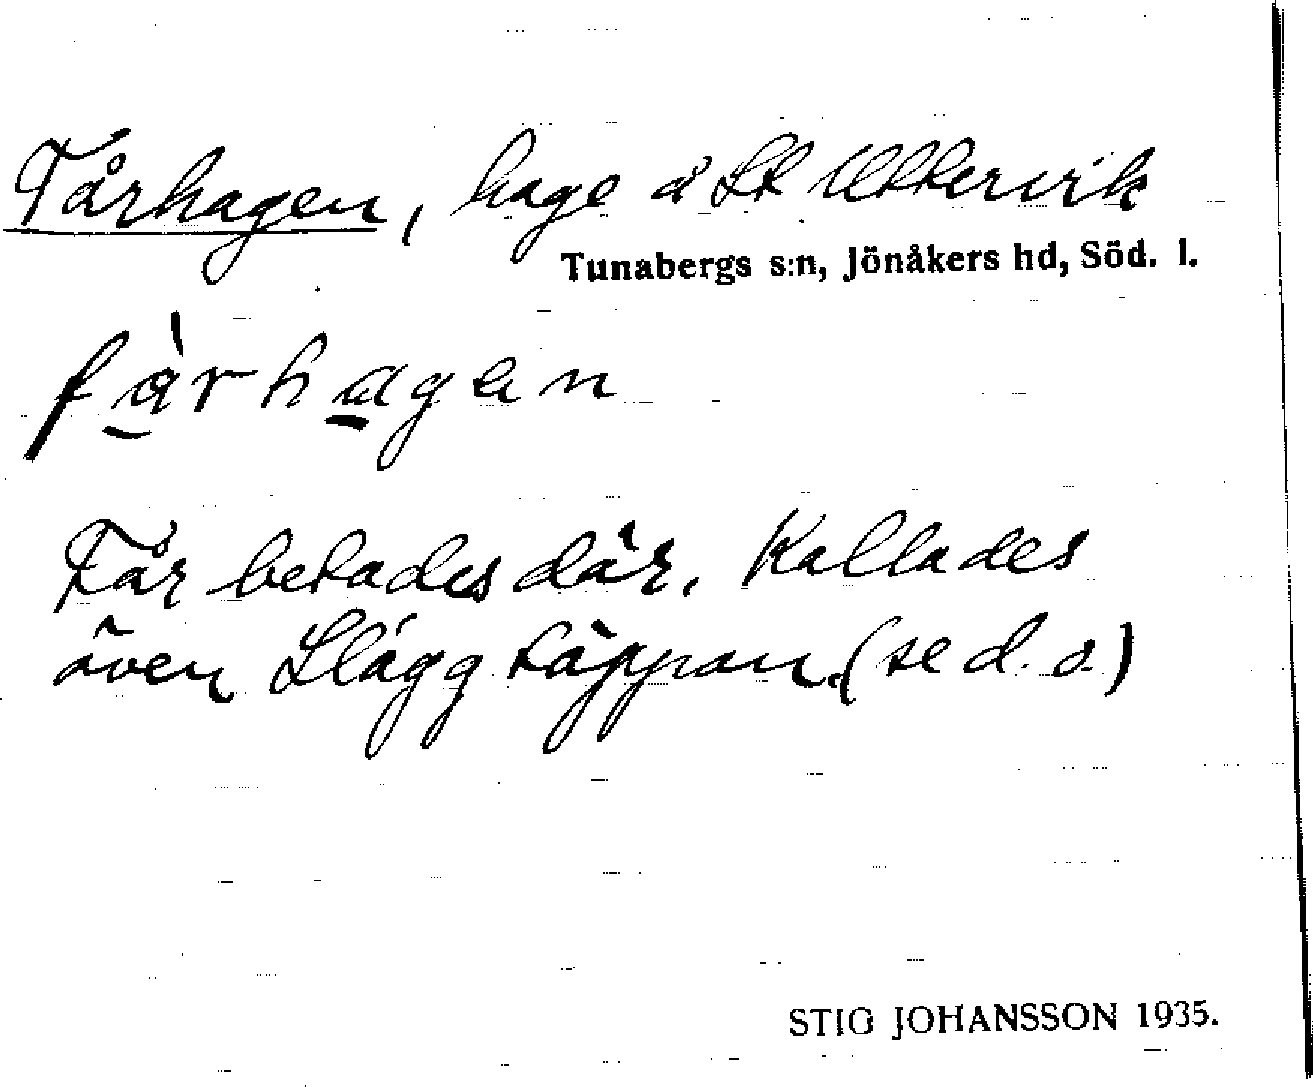 Fårhagen, hage å St Uttervik
Tunabergs s:n, Jönåkers hd, Söd. l.
fårhagen
Får betades där. Kallades
även Släggtäppan. (se d. o.)
STIG JOHANSSON 1935.